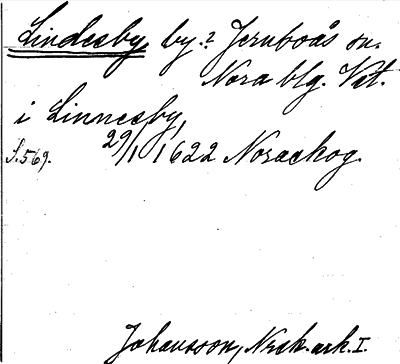 Lindesby, by.? Jernboås sn.
Nora blg. Vst.
i Linnesby,
S.569. 29/1 1622 Noraskog.
Johansson, Nrsk. ark. I.